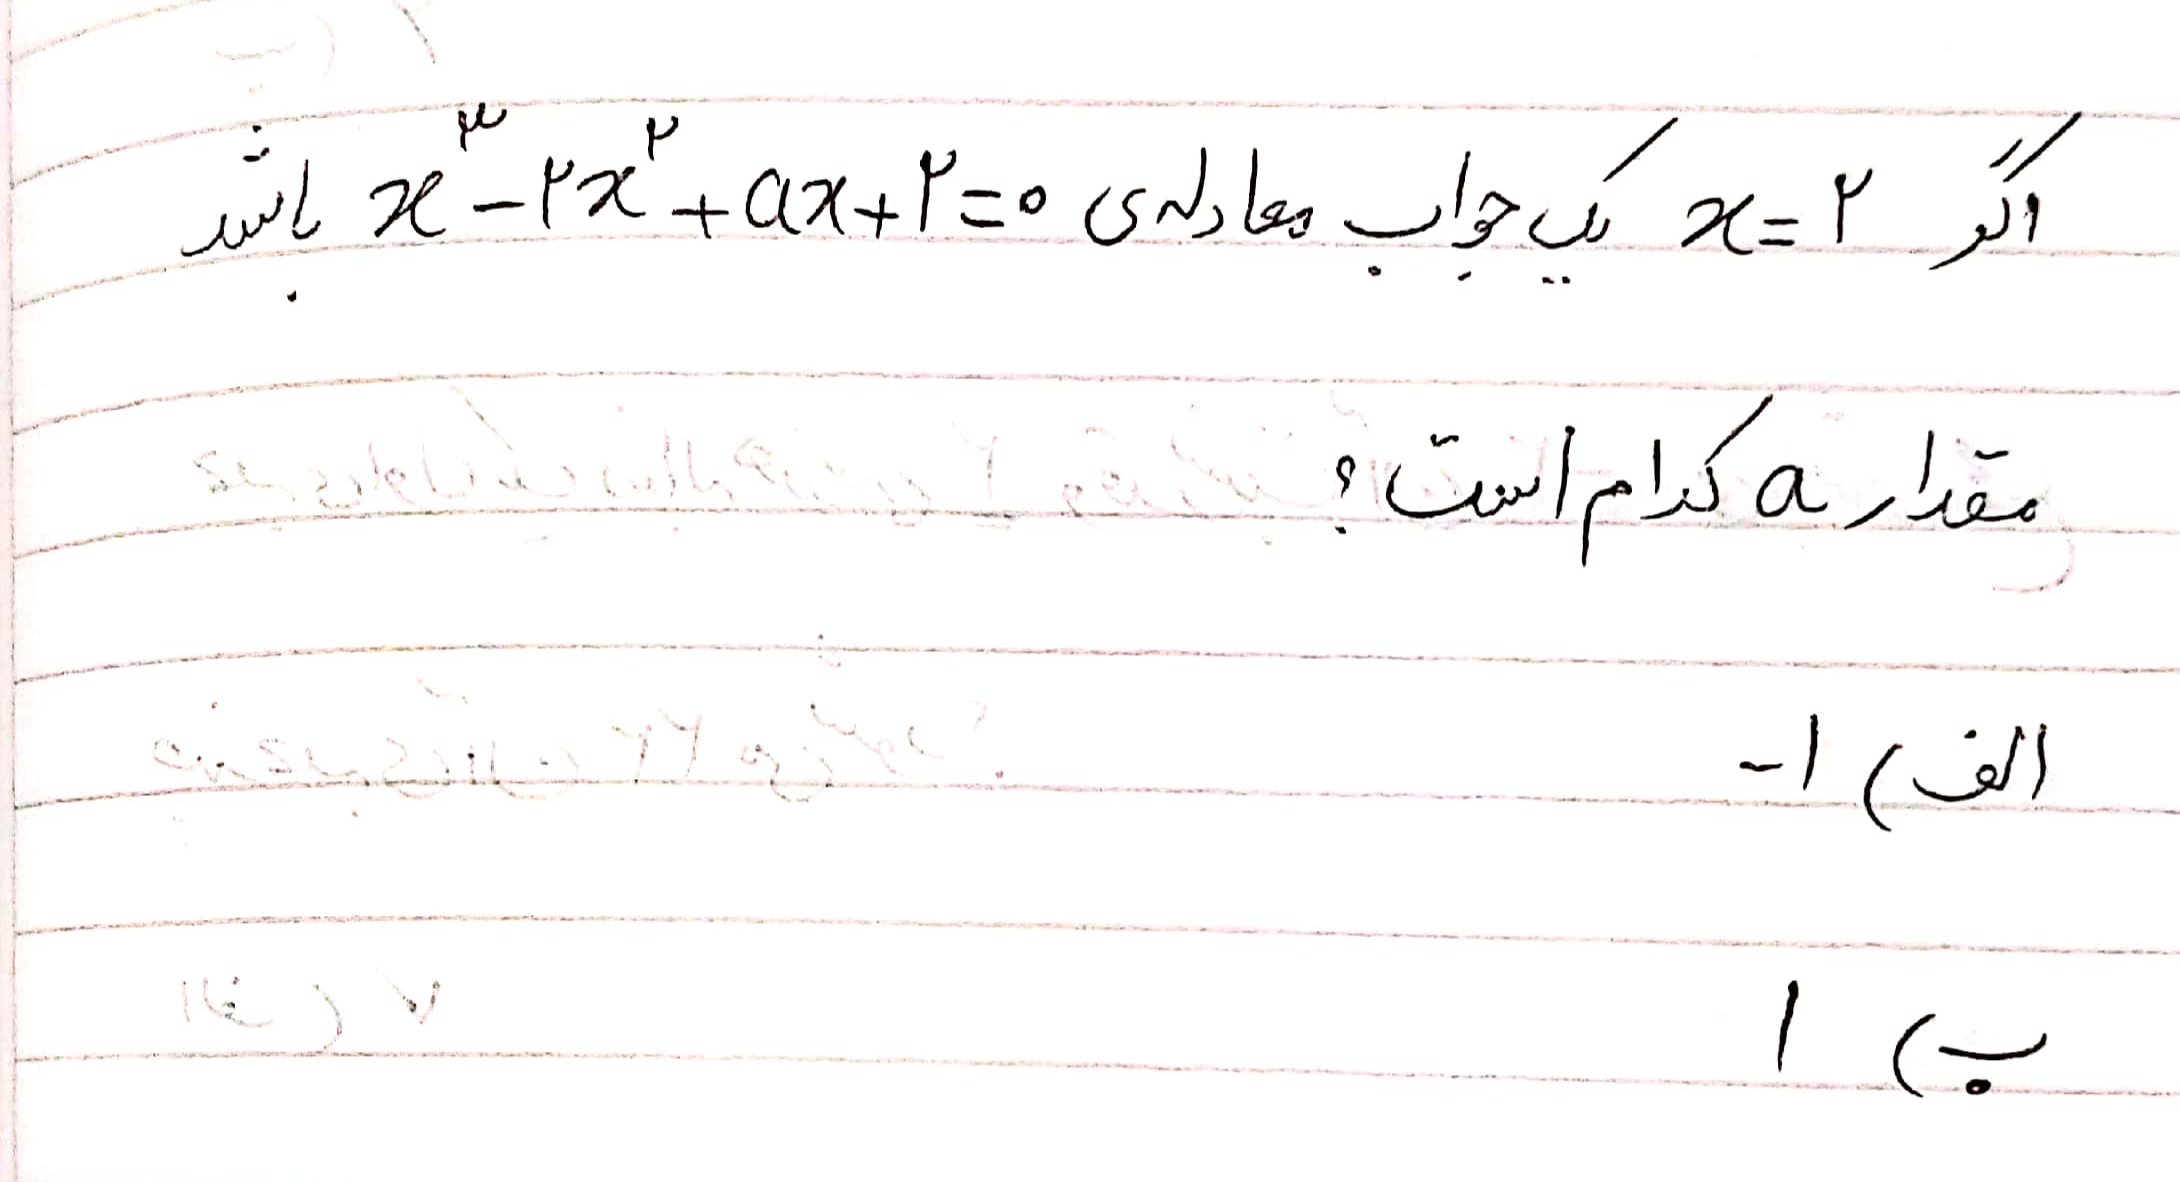 اگر x = ۲ یک جواب معادله‌ی x^۳ - ۲x^۲ + ax + ۲ = ۰ باشد
مقدار a کدام است؟
الف) -۱
ب) ۱